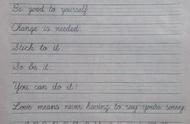 Be good to yourself
Change is needed.
Stick to it.
So be it.
You can do it!
Love means never having to say you're sorry.